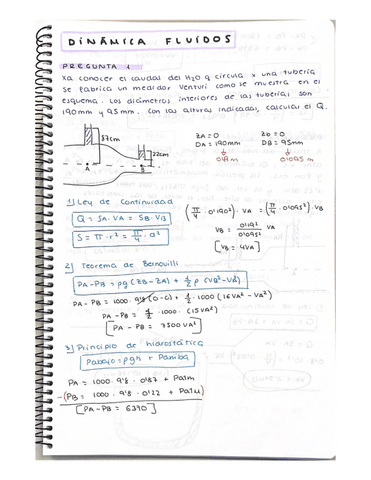 DINÁMICA FLUIDOS
PREGUNTA 1
Xa conocer el caudal del H2O q circula x una tubería
se fabrica un medidor Venturi como se muestra en el
esquema. Los diámetros interiores de las tuberías son
190mm y 95mm. Con las alturas indicadas, calcular el Q.
87cm
22cm
A
B
ZA = 0
ZB = 0
DA = 190mm
DB = 95mm
0'19 m
0'095 m
1) Ley de Continuidad
Q = SA · VA = SB · VB
S = π · r² = π/4 · D²
(π/4 · 0'190²) · VA = (π/4 · 0'095²) · VB
VB = 0'19²/0'095² VA
[VB = 4VA]
2) Teorema de Bernouilli
PA - PB = ρg (ZB - ZA) + 1/2 ρ (VB² - VA²)
PA - PB = 1000 · 9'8 (0-0) + 1/2 · 1000 (16VA² - VA²)
PA - PB = 1/2 · 1000 · (15VA²)
[PA - PB = 7500 VA²]
3) Principio de hidrostática
Pabajo = ρgh + Parriba
PA = 1000 · 9'8 · 0'87 + Patm
-(PB = 1000 · 9'8 · 0'22 + Patm)
[PA - PB = 6370]